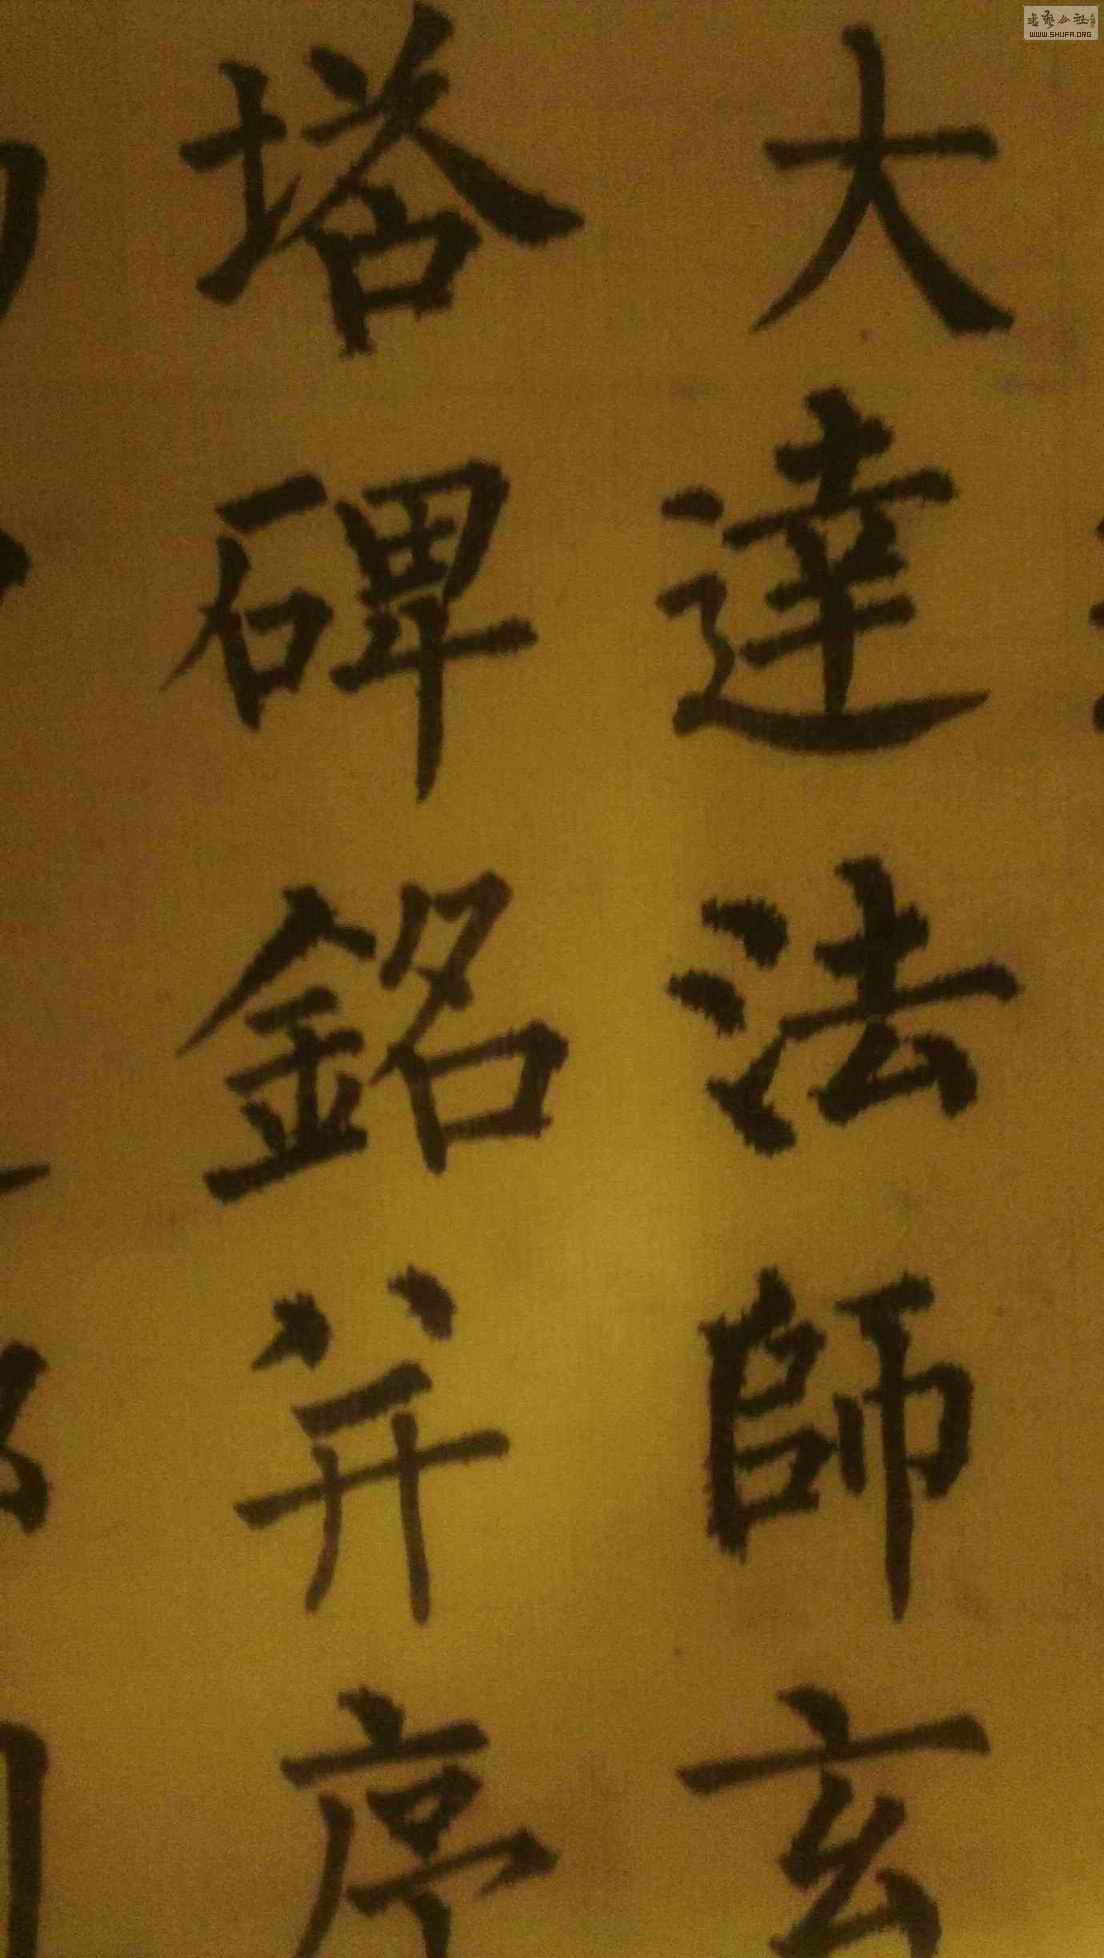 大達法師玄
塔碑銘并序
WWW.SHUFA.ORG